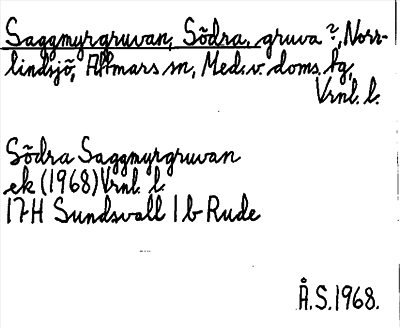 Saggmyrgruvan, Södra, gruva ?, Norr-
lindsjö, Attmars sn, Med. v. doms. bg,
Vrnl. l.
Södra Saggmyrgruvan
ek (1968) Vrnl. l.
17H Sundsvall 1b Rude
Å.S. 1968.